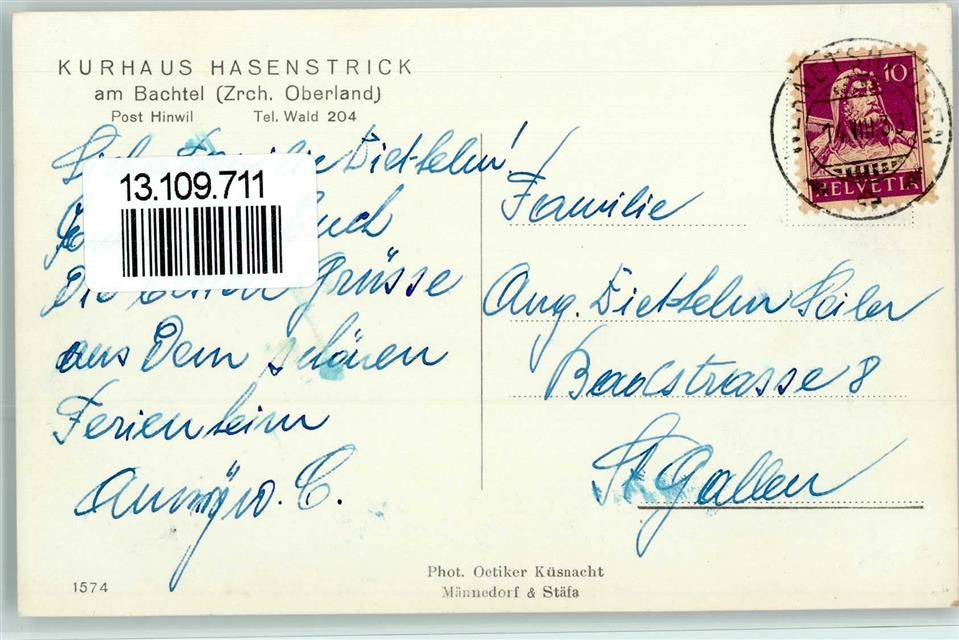 KURHAUS HASENSTRICK
am Bachtel (Zrch. Oberland)
Post Hinwil Tel. Wald 204
Familie Diethelm!
13.109.711
Die Grüsse
aus Dem schönen
Ferienheim
C.
1574
Phot. Oetiker Küsnacht
Männedorf & Stäfa
10
HELVETIA
Familie
Aug. Diethelm Seiler
Badstrasse 8
St Gallen